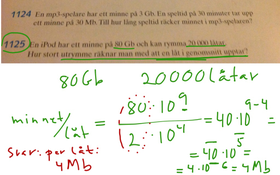 1124 En mp3-spelare har ett minne på 3 Gb. En speltid på 30 minuter tar upp
ett minne på 30 Mb. Till hur lång speltid räcker minnet i mp3-spelaren?
1125 En iPod har ett minne på 80 Gb och kan rymma 20 000 låtar.
Hur stort utrymme räknar man med att en låt i genomsnitt upptar?
80Gb 20000 låtar
minnet/låt = 80·10⁹ / 2·10⁴ = 40·10⁹⁻⁴
= 40·10⁵
= 4·10⁶ = 4Mb
Svar: per låt:
4Mb